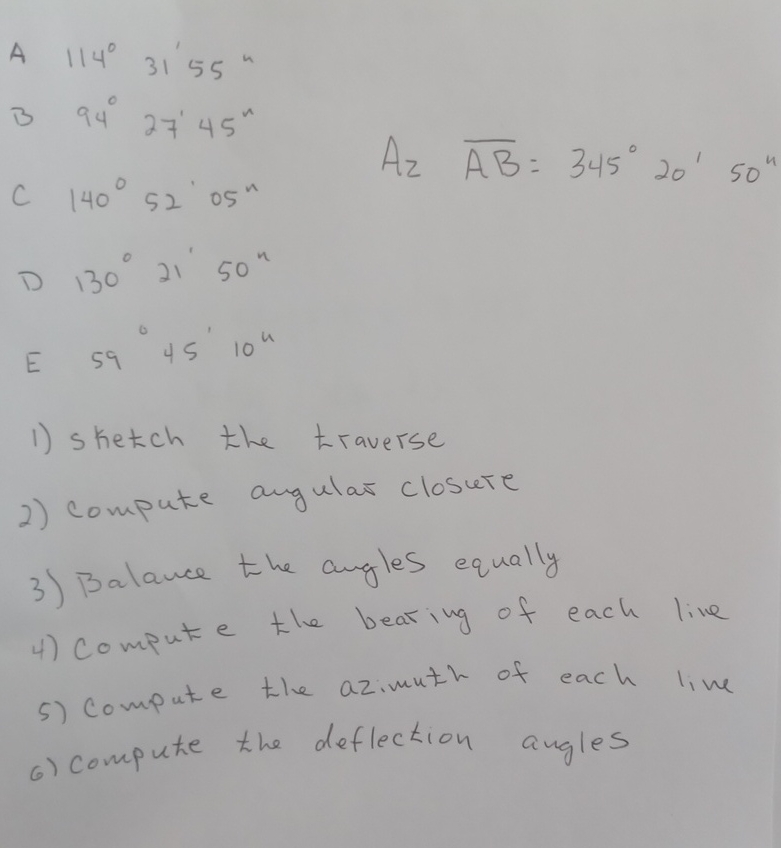 A 114° 31' 55"
B 94° 27' 45"
Az AB = 345° 20' 50"
C 140° 52' 05"
D 130° 21' 50"
E 59° 45' 10"
1) sketch the traverse
2) compute angular closure
3) Balance the angles equally
4) compute the bearing of each line
5) compute the azimuth of each line
6) compute the deflection angles